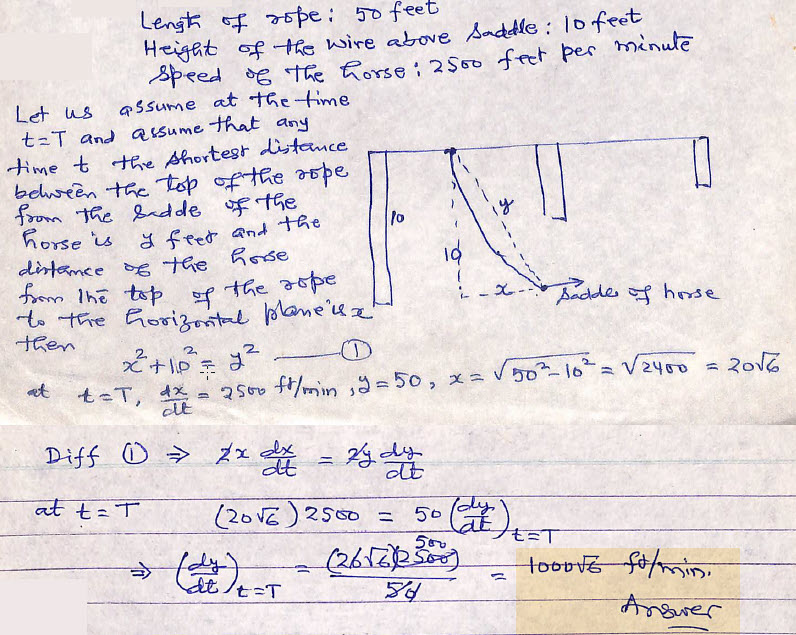 Length of rope: 50 feet
Height of the wire above saddle: 10 feet
Speed of the horse: 2500 feet per minute
Let us assume at the time
t=T and assume that any
time t the shortest distance
between the top of the rope
from the sadde of the
horse is y feet and the
distance of the horse
from the top of the rope
to the horizontal plane is x
then
10
10
y
x
Saddle of horse
x² + 10² = y² ——— ①
at t=T, dx/dt = 2500 ft/min, y=50, x = √50²-10² = √2400 = 20√6
Diff ① ⇒ 2x dx/dt = 2y dy/dt
at t=T (20√6) 2500 = 50 (dy/dt) t=T
⇒ (dy/dt) t=T = (20√6)(2500) 500 / 50 = 1000√6 ft/min.
Answer